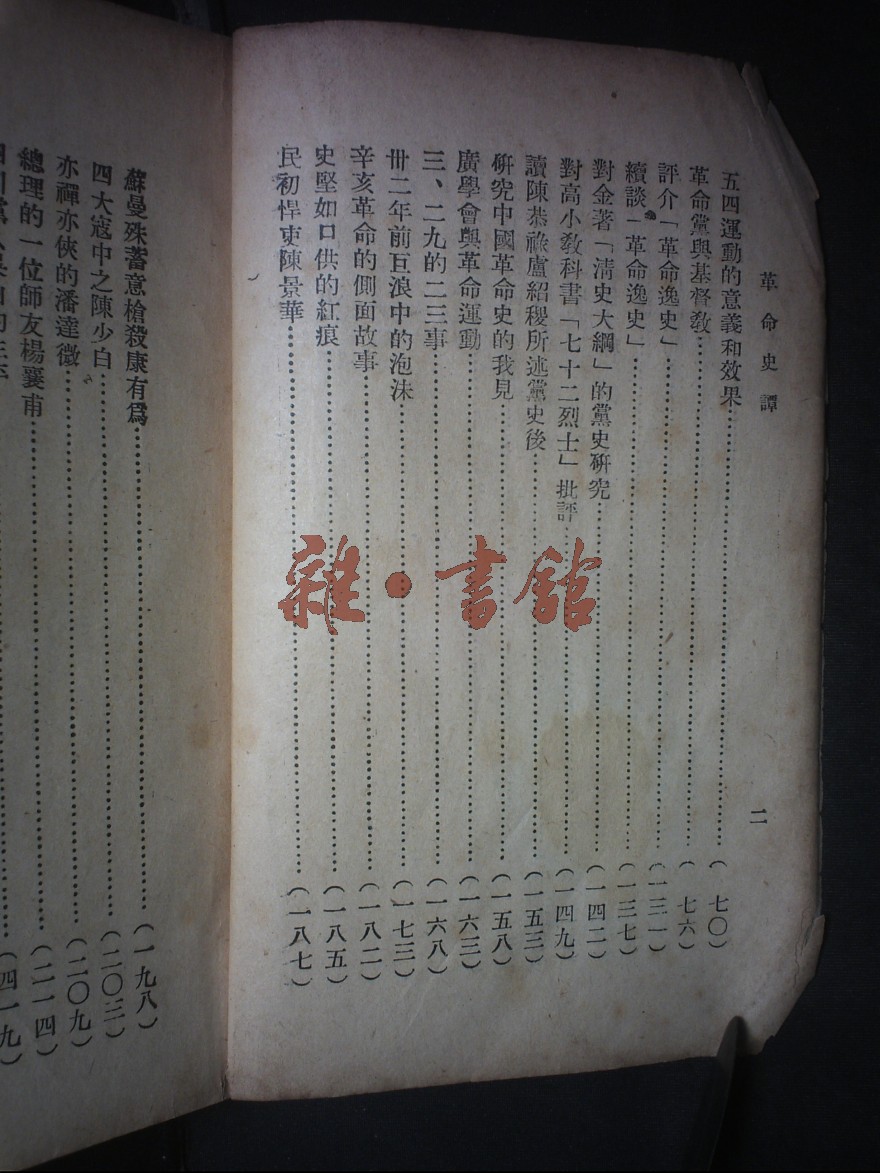 革命史譚
二
五四運動的意義和效果(七〇)
革命黨與基督敎(七六)
評介「革命逸史」(一三一)
續談「革命逸史」(一三七)
對金著「清史大綱」的黨史硏究(一四二)
對高小敎科書「七十二烈士」批評(一四九)
讀陳恭祿盧紹稷所述黨史後(一五三)
硏究中國革命史的我見(一五八)
廣學會與革命運動(一六三)
三、二九的二三事(一六八)
卅二年前巨浪中的泡沫(一七三)
辛亥革命的側面故事(一八二)
史堅如口供的紅痕(一八五)
民初悍吏陳景華(一八七)
蘇曼殊蓄意槍殺康有爲(一九八)
四大寇中之陳少白(二〇三)
亦禪亦俠的潘達微(二〇九)
總理的一位師友楊襄甫(二一四)
雜·書館